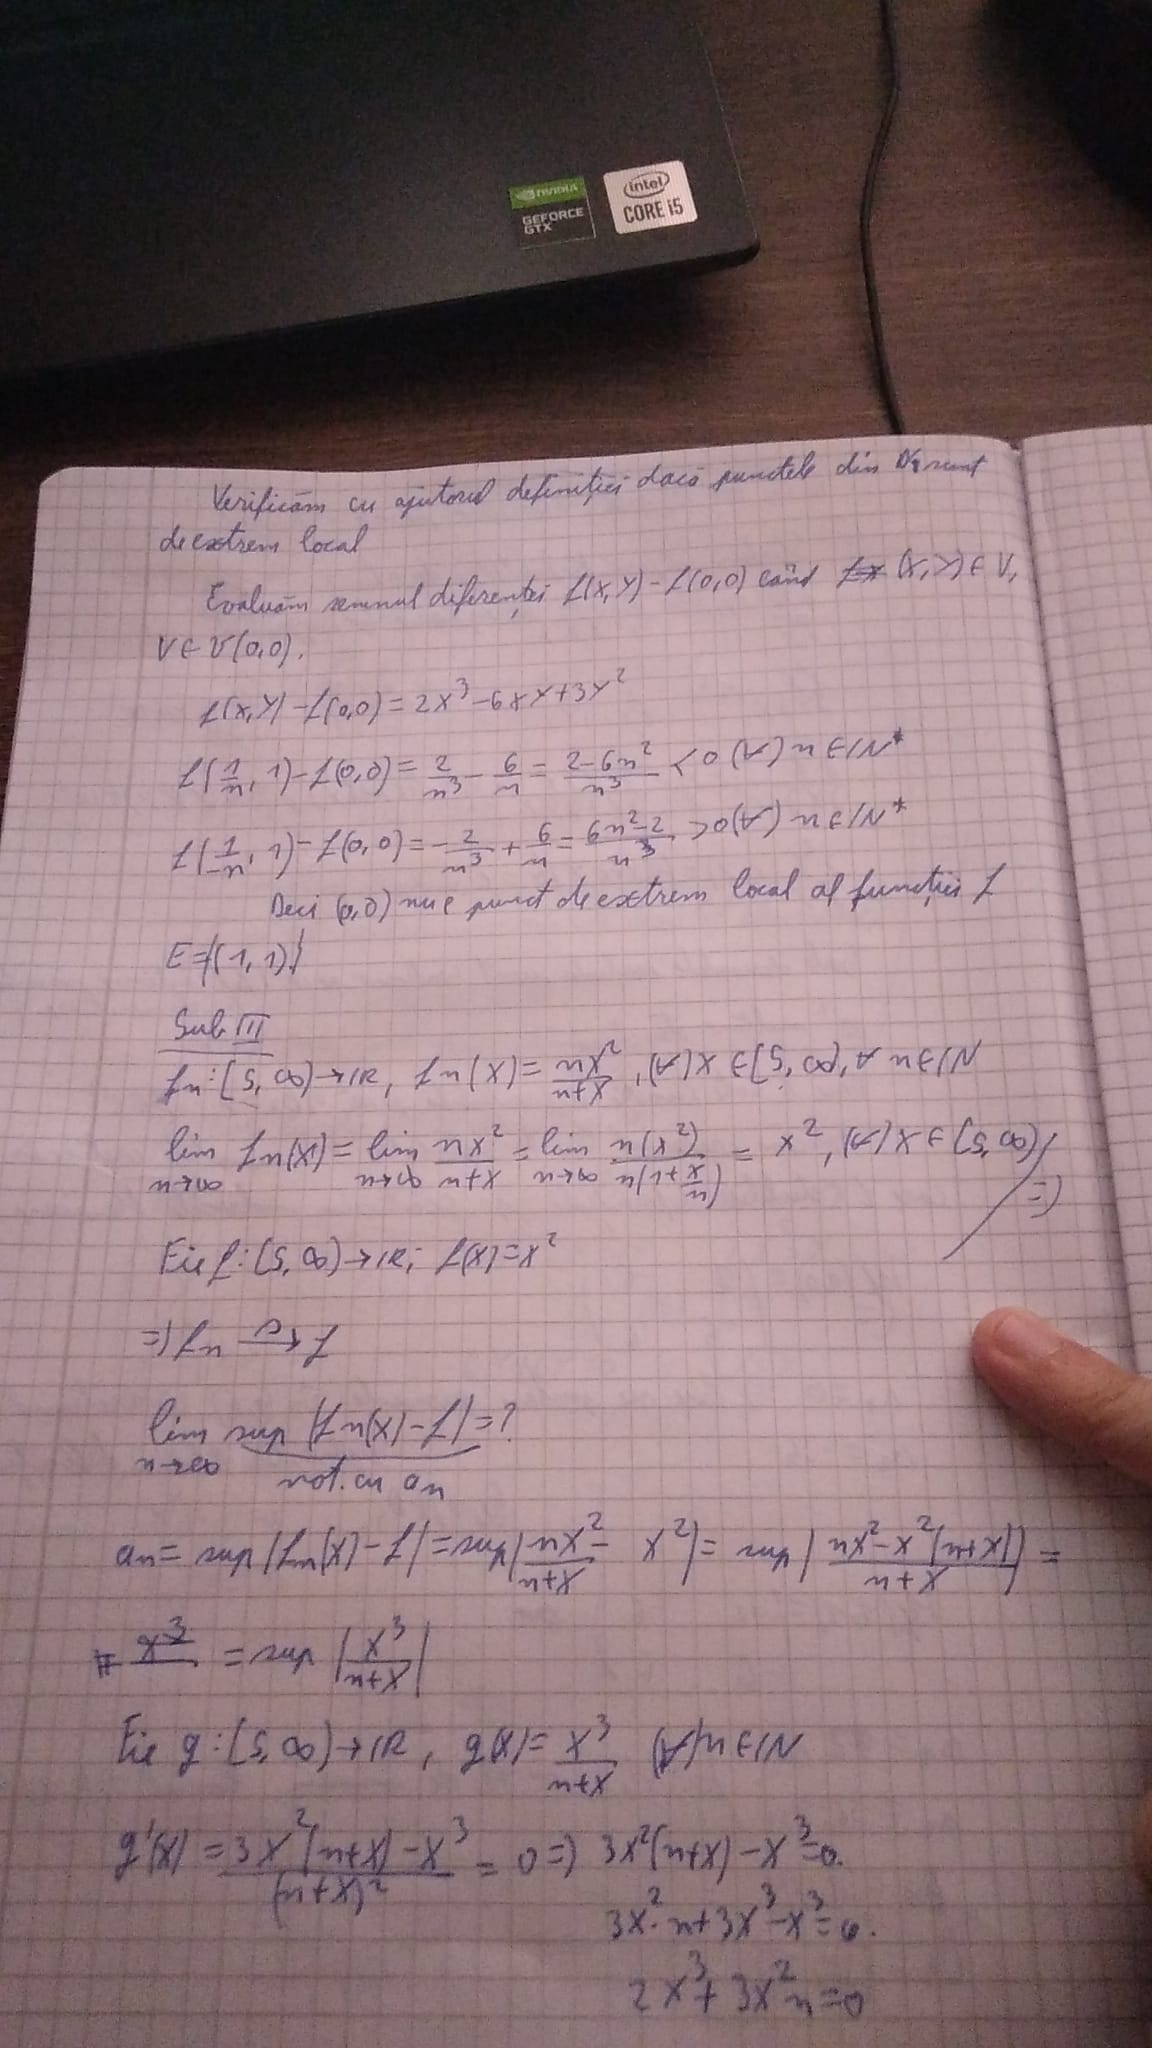 NVIDIA
GEFORCE
GTX
intel
CORE i5
Verificăm cu ajutorul definiției dacă punctele din sunt
de extrem local
Evaluăm semnul diferenței f(x,y)-f(0,0) când (x,y)∈V,
V∈V(0,0).
f(x,y)-f(0,0)=2x³-6xy+3y²
f(1/n, 1)-f(0,0)= 2/n³ - 6/n = (2-6n²)/n³ <0 (∀) n∈IN*
f(1/-n, 1)-f(0,0)= -2/n³ + 6/n = (6n²-2)/n³ >0(∀) n∈IN*
Deci (0,0) nu e punct de extrem local al funcției f
E={(1,1)}
Sub III
fn:[5,∞)→IR, fn(x)= nx²/(n+x), (∀)x∈[5,∞), ∀ n∈IN
lim n→∞ fn(x)= lim n→∞ nx²/(n+x) = lim n→∞ n(x²)/(n(1+x/n)) = x², (∀)x∈[5,∞) =)
Fie f:[5,∞)→IR, f(x)=x²
=) fn s→ f
lim n→∞ sup |fn(x)-f|=?
not. cu an
an= sup|fn(x)-f|=sup|nx²/(n+x) - x²|= sup|(nx²-x²(n+x))/(n+x)| =
= sup |x³/(n+x)|
Fie g:[5,∞)→IR, g(x)= x³/(n+x) (∀)n∈IN
g'(x) = (3x²(n+x)-x³)/(n+x)² = 0 =) 3x²(n+x)-x³=0.
3x²·n+3x³-x³=0.
2x³+3x²n=0